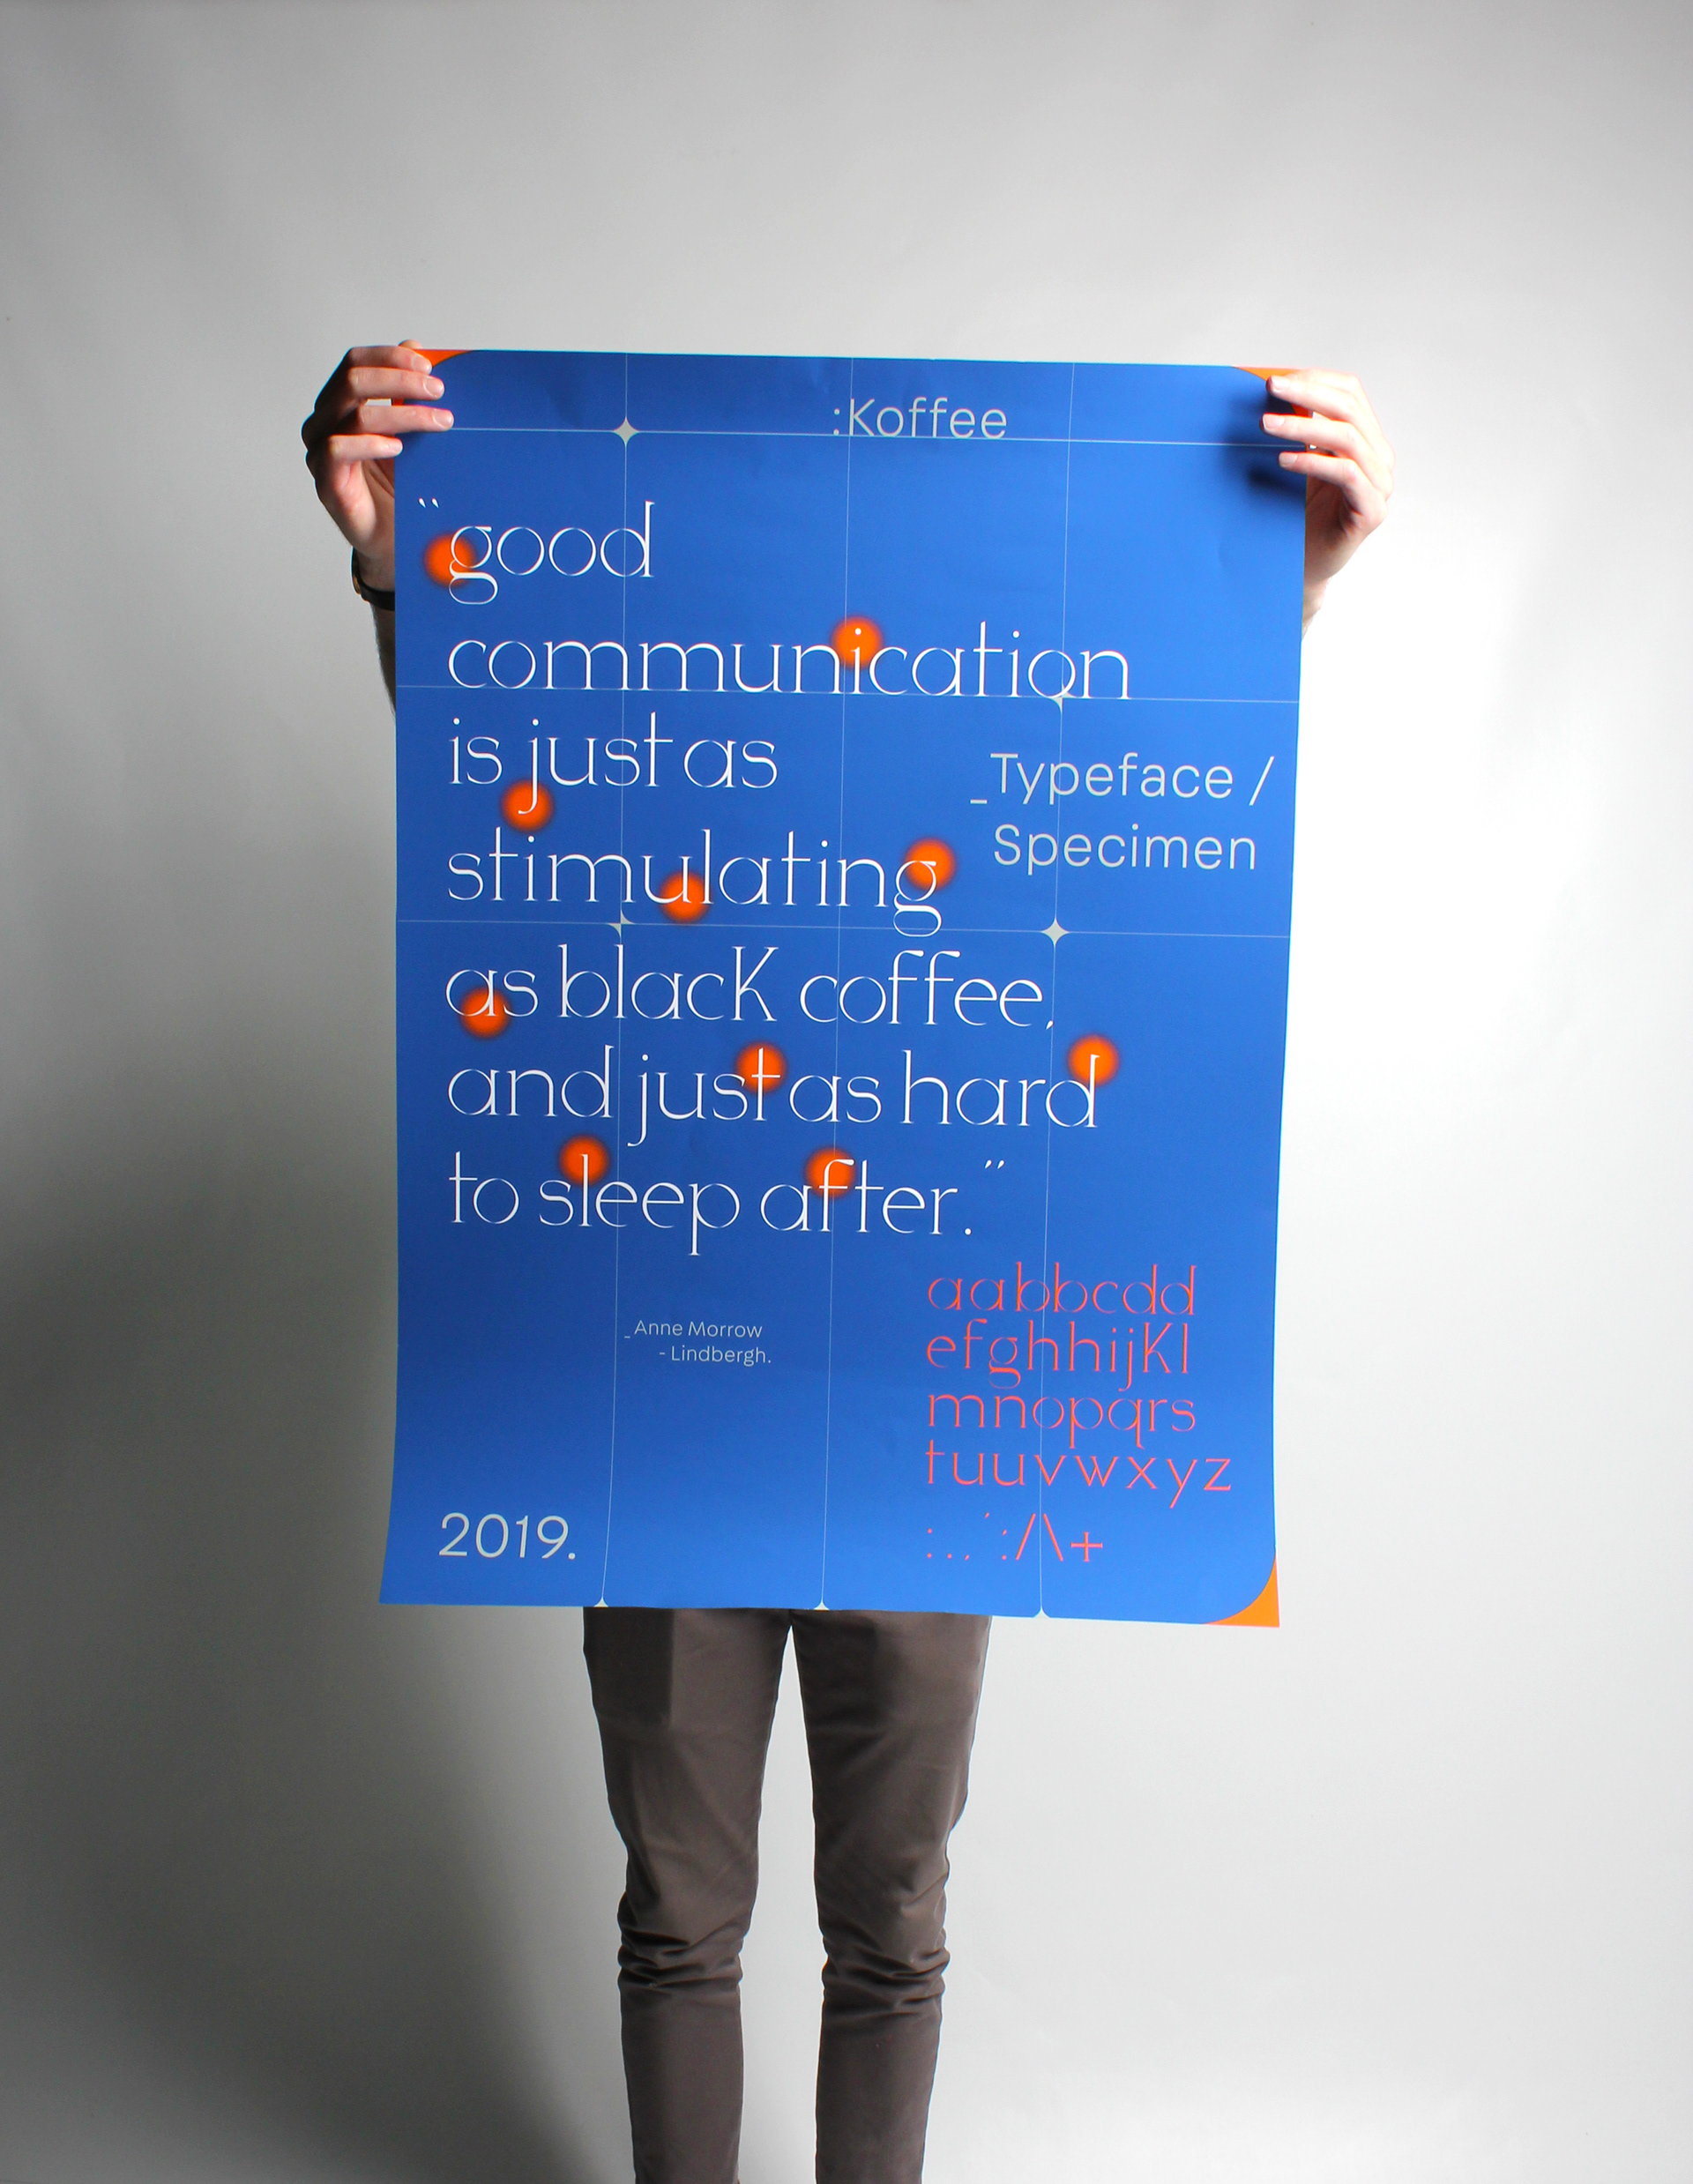 :Koffee
“good
communication
is just as
stimulating
as blacK coffee,
and just as hard
to sleep after.”
_Typeface /
Specimen
_Anne Morrow
- Lindbergh.
aabbcdd
efghhijKl
mnopqrs
tuuvwxyz
:.,´:/\+
2019.